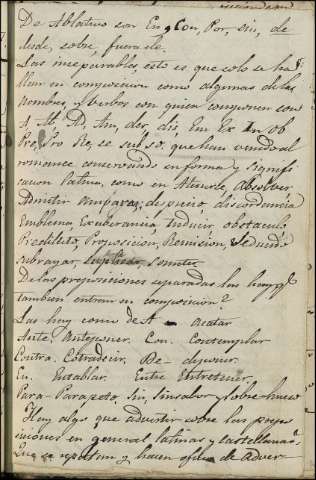 De Ablativo son En, Con, Por, Sin, de
desde, sobre, fuera de.
Las inseparables, esto es que solo se ha
llan en composicion como algunas de las
nombres, y Verbos con quien componen son
A. Ab. Ad, An, der, dis, Em. Ex In ob
Pre, Pro Re, se sub so, que han venido al
romance conservando su forma y signifi
cacion latina, como en Absolver
Dimitir Amparar, desprecio, discordancia
Emblema, Exuberancia, Inducir, obstaculo,
Proposicion, Remision, Seducir
Subrayar, Someter
De las preposiciones separadas las hay qe
tambien entran en composicion?
Las hay como de A - Acatar
Ante. Anteponer. Con. Contemplar
Contra. Contradecir. De - deponer.
En. Entablar. Entre Entretener.
Para - Parapeto, Sin, Sinsabor y sobre hueso
Hay algo que advertir sobre las prepo
siciones en general latinas y castellanas?
Que se repiten y hacen oficio de Adver-